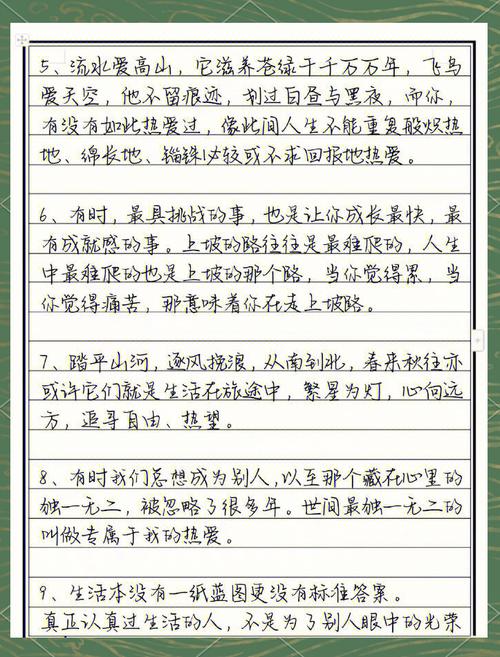 5、流水爱高山，它滋养苍绿千千万万年，飞鸟
爱天空，他不留痕迹，划过白昼与黑夜，而你，
有没有如此热爱过，像此间人生不能重复般炽热
地、绵长地、锱铢必较或不求回报地热爱。
6、有时，最具挑战的事，也是让你成长最快，最
有成就感的事。上坡的路往往是最难爬的，人生
中最难爬的也是上坡的那个路，当你觉得累，当
你觉得痛苦，那意味着你在走上坡路。
7、踏平山河，逐风挽浪，从南到北，春来秋往亦
或许它们就是生活在旅途中，繁星为灯，心向远
方，追寻自由、热望。
8、有时我们总想成为别人，以至那个藏在心里的
独一无二，被忽略了很多年。世间最独一无二的
叫做专属于我的热爱。
9、生活本没有一纸蓝图更没有标准答案。
真正认真过生活的人，不是为了别人眼中的光荣